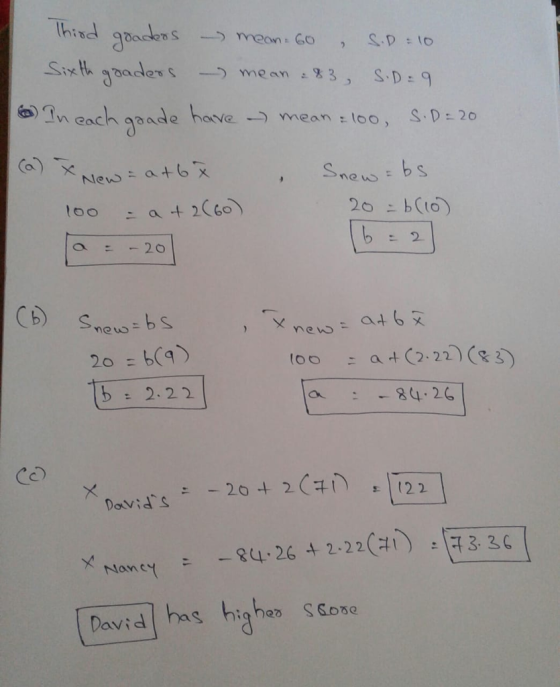 Third graders → mean=60 , S.D = 10
Sixth graders → mean = 83, S.D = 9
In each grade have → mean = 100, S.D = 20
(a) x̄ New = a+b x̄ , Snew = bs
100 = a + 2(60) 20 = b(10)
a = -20 b = 2
(b) Snew = bs , x̄ new = a+b x̄
20 = b(9) 100 = a+(2.22)(83)
b = 2.22 a = -84.26
(c) x David's = -20+2(71) = 122
x Nancy = -84.26+2.22(71) = 73.36
David has higher score